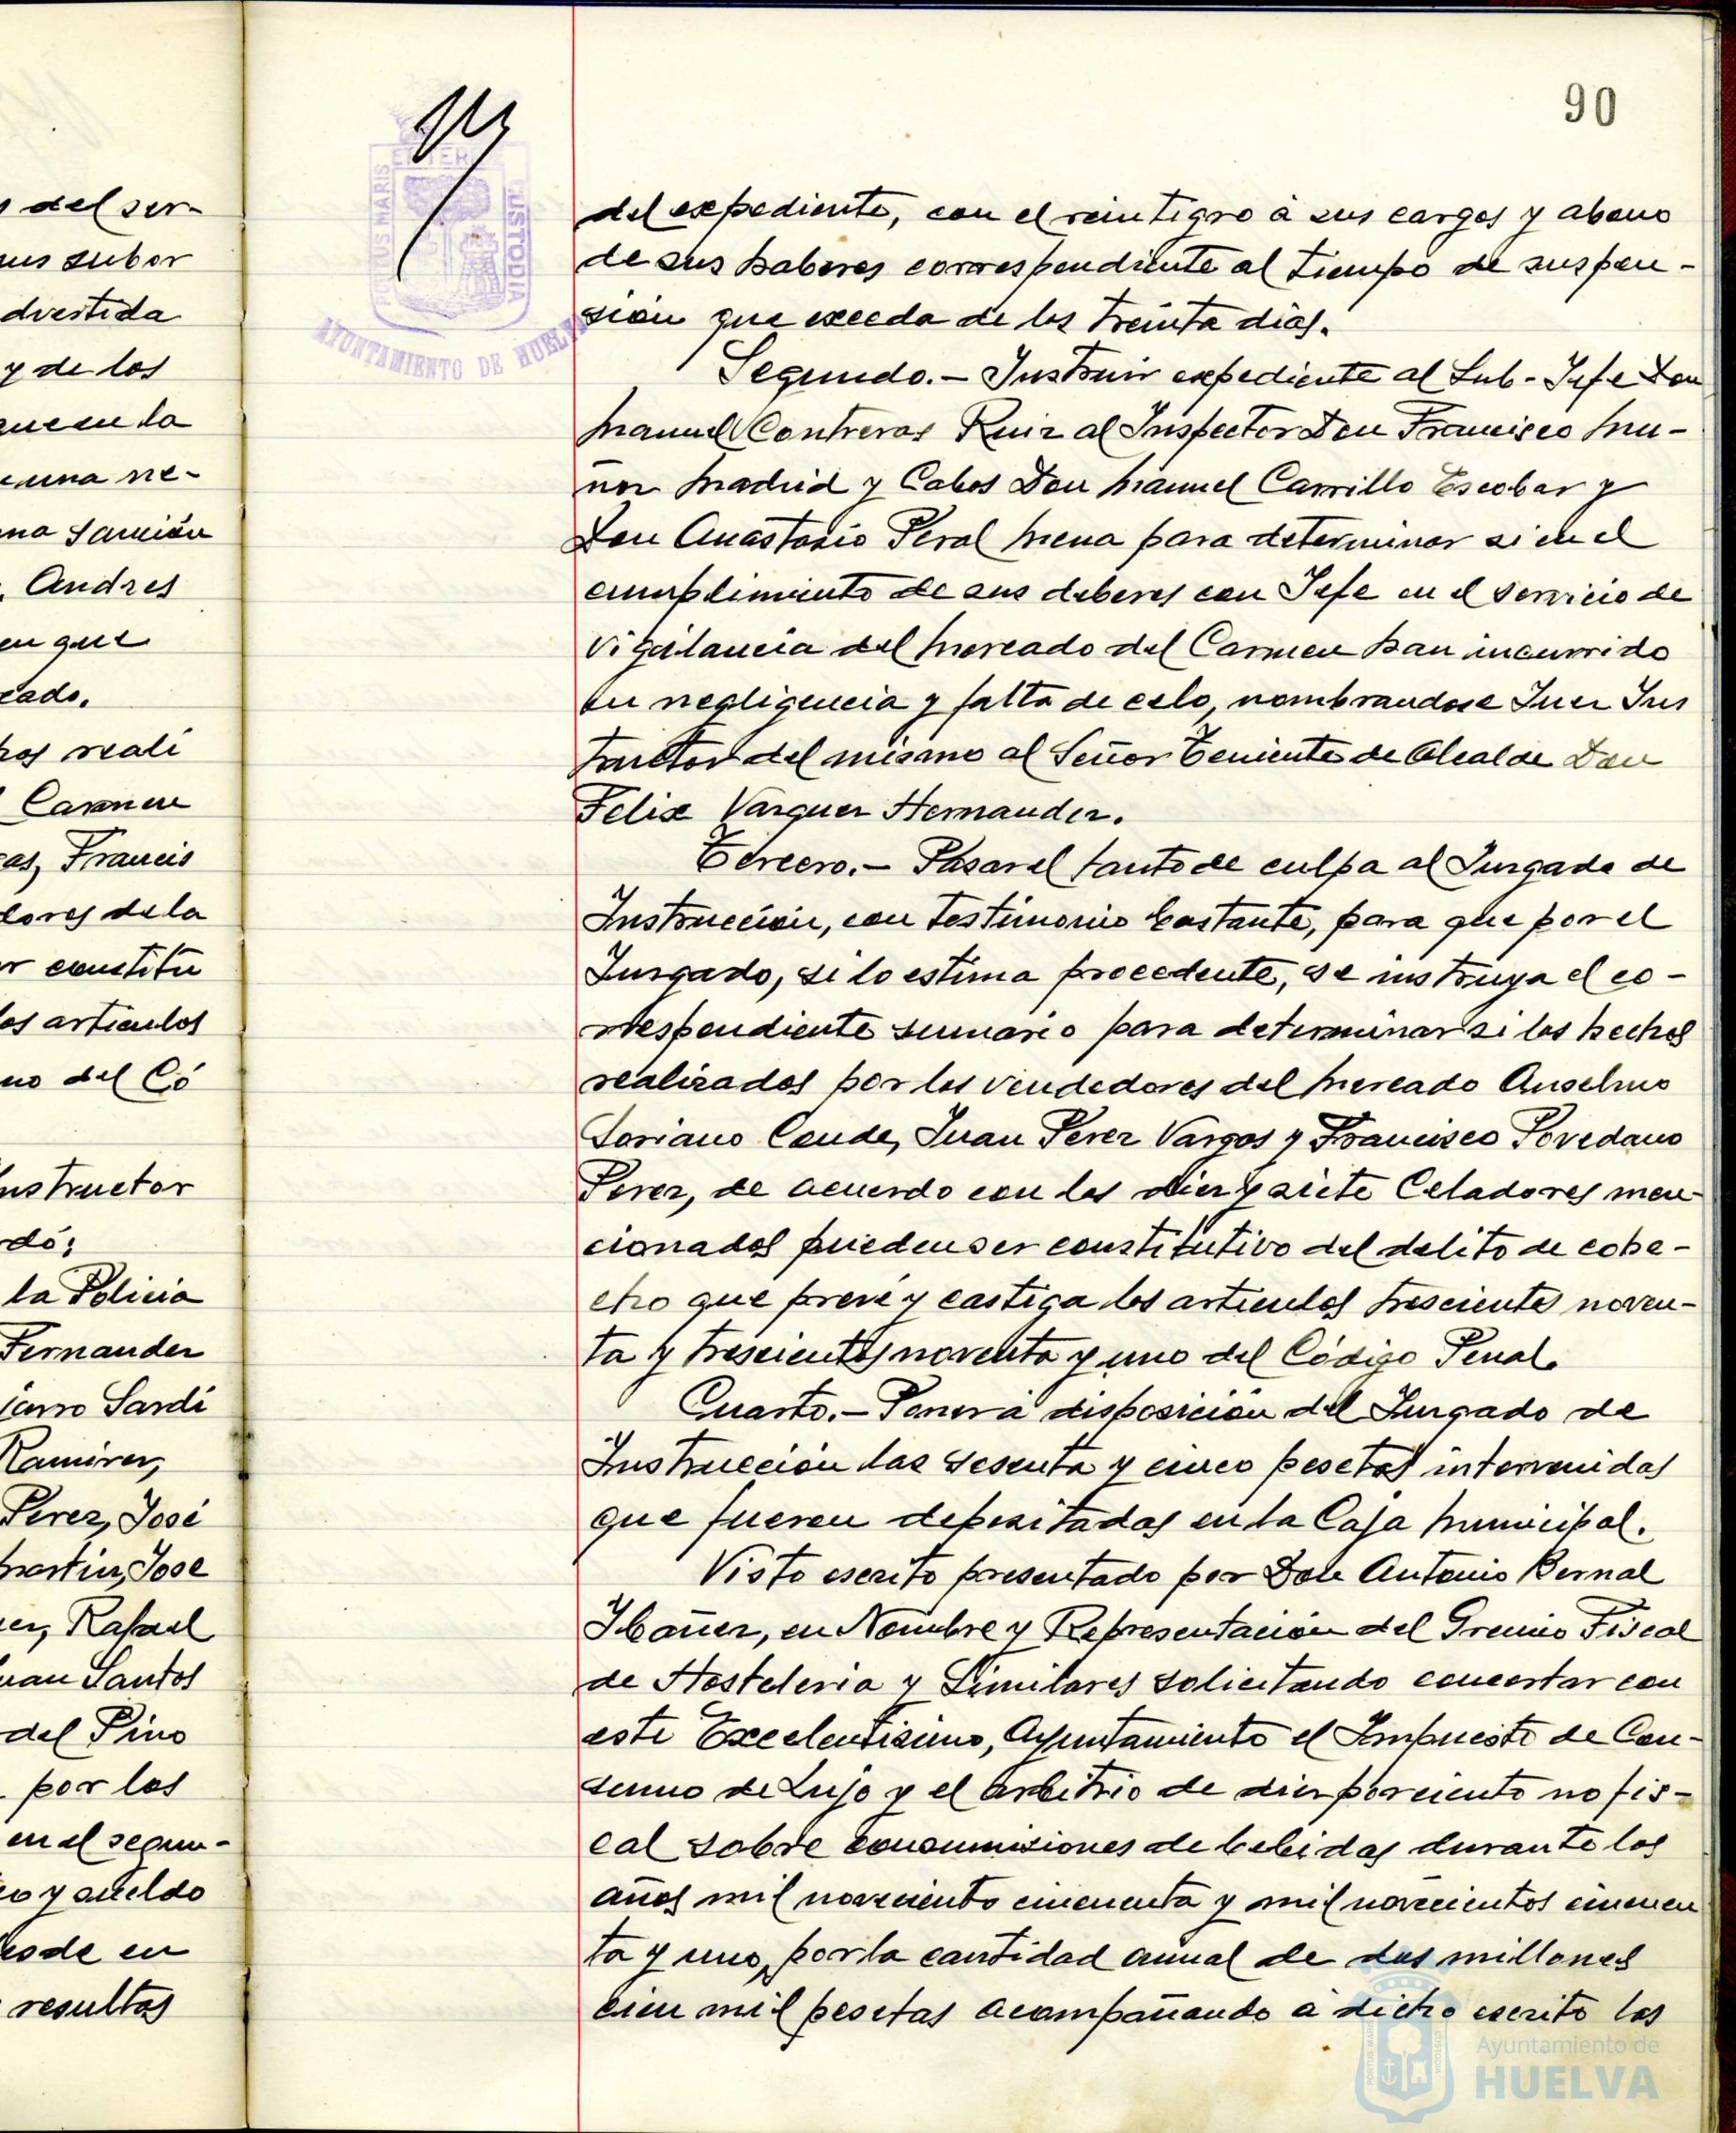 90
PORTUS MARIS
ET TERRE
CUSTODIA
AYUNTAMIENTO DE HUELVA
del ser-
sus subor
dvertida
y de los
que en la
una ne-
na sanción
Andres
en que
cado.
hos reali
Carmen
as, Francis
dores de la
r constitu
los artículos
no del Có
nstructor
rdó:
la Policia
Fernandez
iarro Sardi
Ramirez,
Perez, José
Martin, Jose
ez, Rafael
uan Santos
del Pino
por los
en el segun-
o y sueldo
esde en
resultas
del expediente, con el reintigro á sus cargos y abono
de sus haberes correspondiente al tiempo de suspen-
sión que exceda de los treinta dias.
Segundo.- Instruir expediente al Sub-Jefe Don
Manuel Contreras Ruiz al Inspector Don Francisco Mu-
ñoz Madrid y Cabos Don Manuel Carrillo Escobar y
Don Anastasio Peral Mena para determinar si en el
cumplimiento de sus deberes con Jefe en el servicio de
vigilancia del Mercado del Carmen han incurrido
en negligencia y falta de celo, nombrandose Juez Ins
tructor del mismo al Señor Teniente de Alcalde Don
Felix Vazquez Hernandez.
Tercero.- Pasar el tanto de culpa al Juzgado de
Instrucción, con testimonio bastante, para que por el
Juzgado, si lo estima procedente, se instruya el co-
rrespondiente sumario para determinar si los hechos
realizados por los vendedores del Mercado Anselmo
Soriano Conde, Juan Perez Vargas y Francisco Povedano
Perez, de acuerdo con los diez y siete Celadores men-
cionados pueden ser constitutivo del delito de cohe-
cho que prevé y castiga los articulos trescientos noven-
ta y trescientos noventa y uno del Código Penal.
Cuarto.- Poner á disposición del Juzgado de
Instrucción las sesenta y cinco pesetas intervenidas
que fueron depositadas en la Caja Municipal.
Visto escrito presentado por Don Antonio Bernal
Ibañez, en Nombre y Representación del Gremio Fiscal
de Hosteleria y Similares solicitando concertar con
este Excelentisimo, Ayuntamiento el Impuesto de Con-
sumo de Lujo y el arbitrio de diez por ciento no fis-
cal sobre consumisiones de bebidas durante los
años mil noveciento cincuenta y mil novecientos cincuen
ta y uno, por la cantidad anual de dos millones
cien mil pesetas acompañando á dicho escrito los
Ayuntamiento de
HUELVA